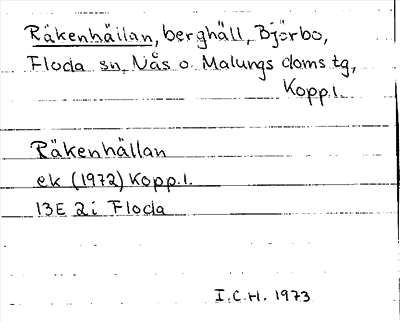 Räkenhällan, berghäll, Björbo,
Floda sn, Nås o. Malungs doms tg,
Kopp.l.
Räkenhällan
ek (1972) Kopp.l.
13E 2i Floda
I.C.H. 1973